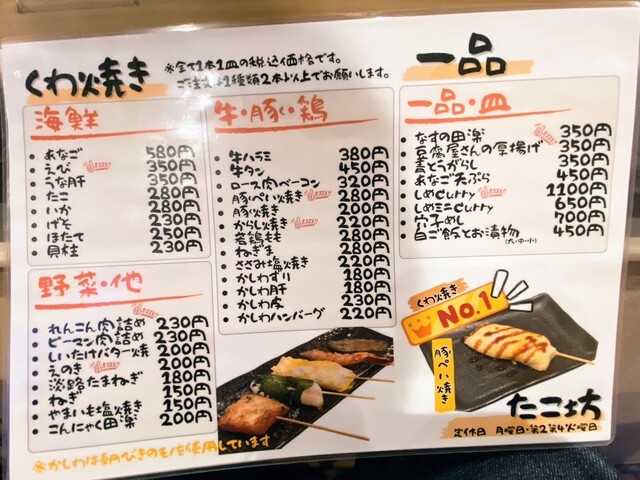 くわ焼き
※全て1本1皿の税込価格です。
ご注文は1種類2本以上でお願いします。
海鮮
・あなご 580円
・えび 350円
・うなぎ肝 350円
・たこ 280円
・いか 280円
・げそ 230円
・ほたて 250円
・貝柱 230円
野菜・他
・れんこん肉詰め 230円
・ピーマン肉詰め 230円
・しいたけバター焼 200円
・えのき 200円
・淡路たまねぎ 180円
・ねぎ 150円
・やまいも塩焼き 150円
・こんにゃく田楽 200円
※かしわは朝びきのモノを使用しています
牛・豚・鶏
・牛ハラミ 380円
・牛タン 450円
・ロース肉ベーコン 320円
・豚ぺい焼き 280円
・豚焼き 200円
・からし焼き 220円
・若鶏もも 280円
・ねぎま 280円
・ささみ塩焼き 220円
・かしわずり 180円
・かしわ肝 180円
・かしわ皮 230円
・かしわハンバーグ 220円
一品
一品・皿
・なすの田楽 350円
・豆腐屋さんの厚揚げ 350円
・青とうがらし 350円
・あなご天ぷら 450円
・しめcurry 1100円
・しめミニcurry 650円
・穴子めし 700円
・白ご飯とお漬物 450円
(大・中・小)
くわ焼き
No.1
豚ぺい焼き
たこ坊
定休日 月曜日・第2第4火曜日